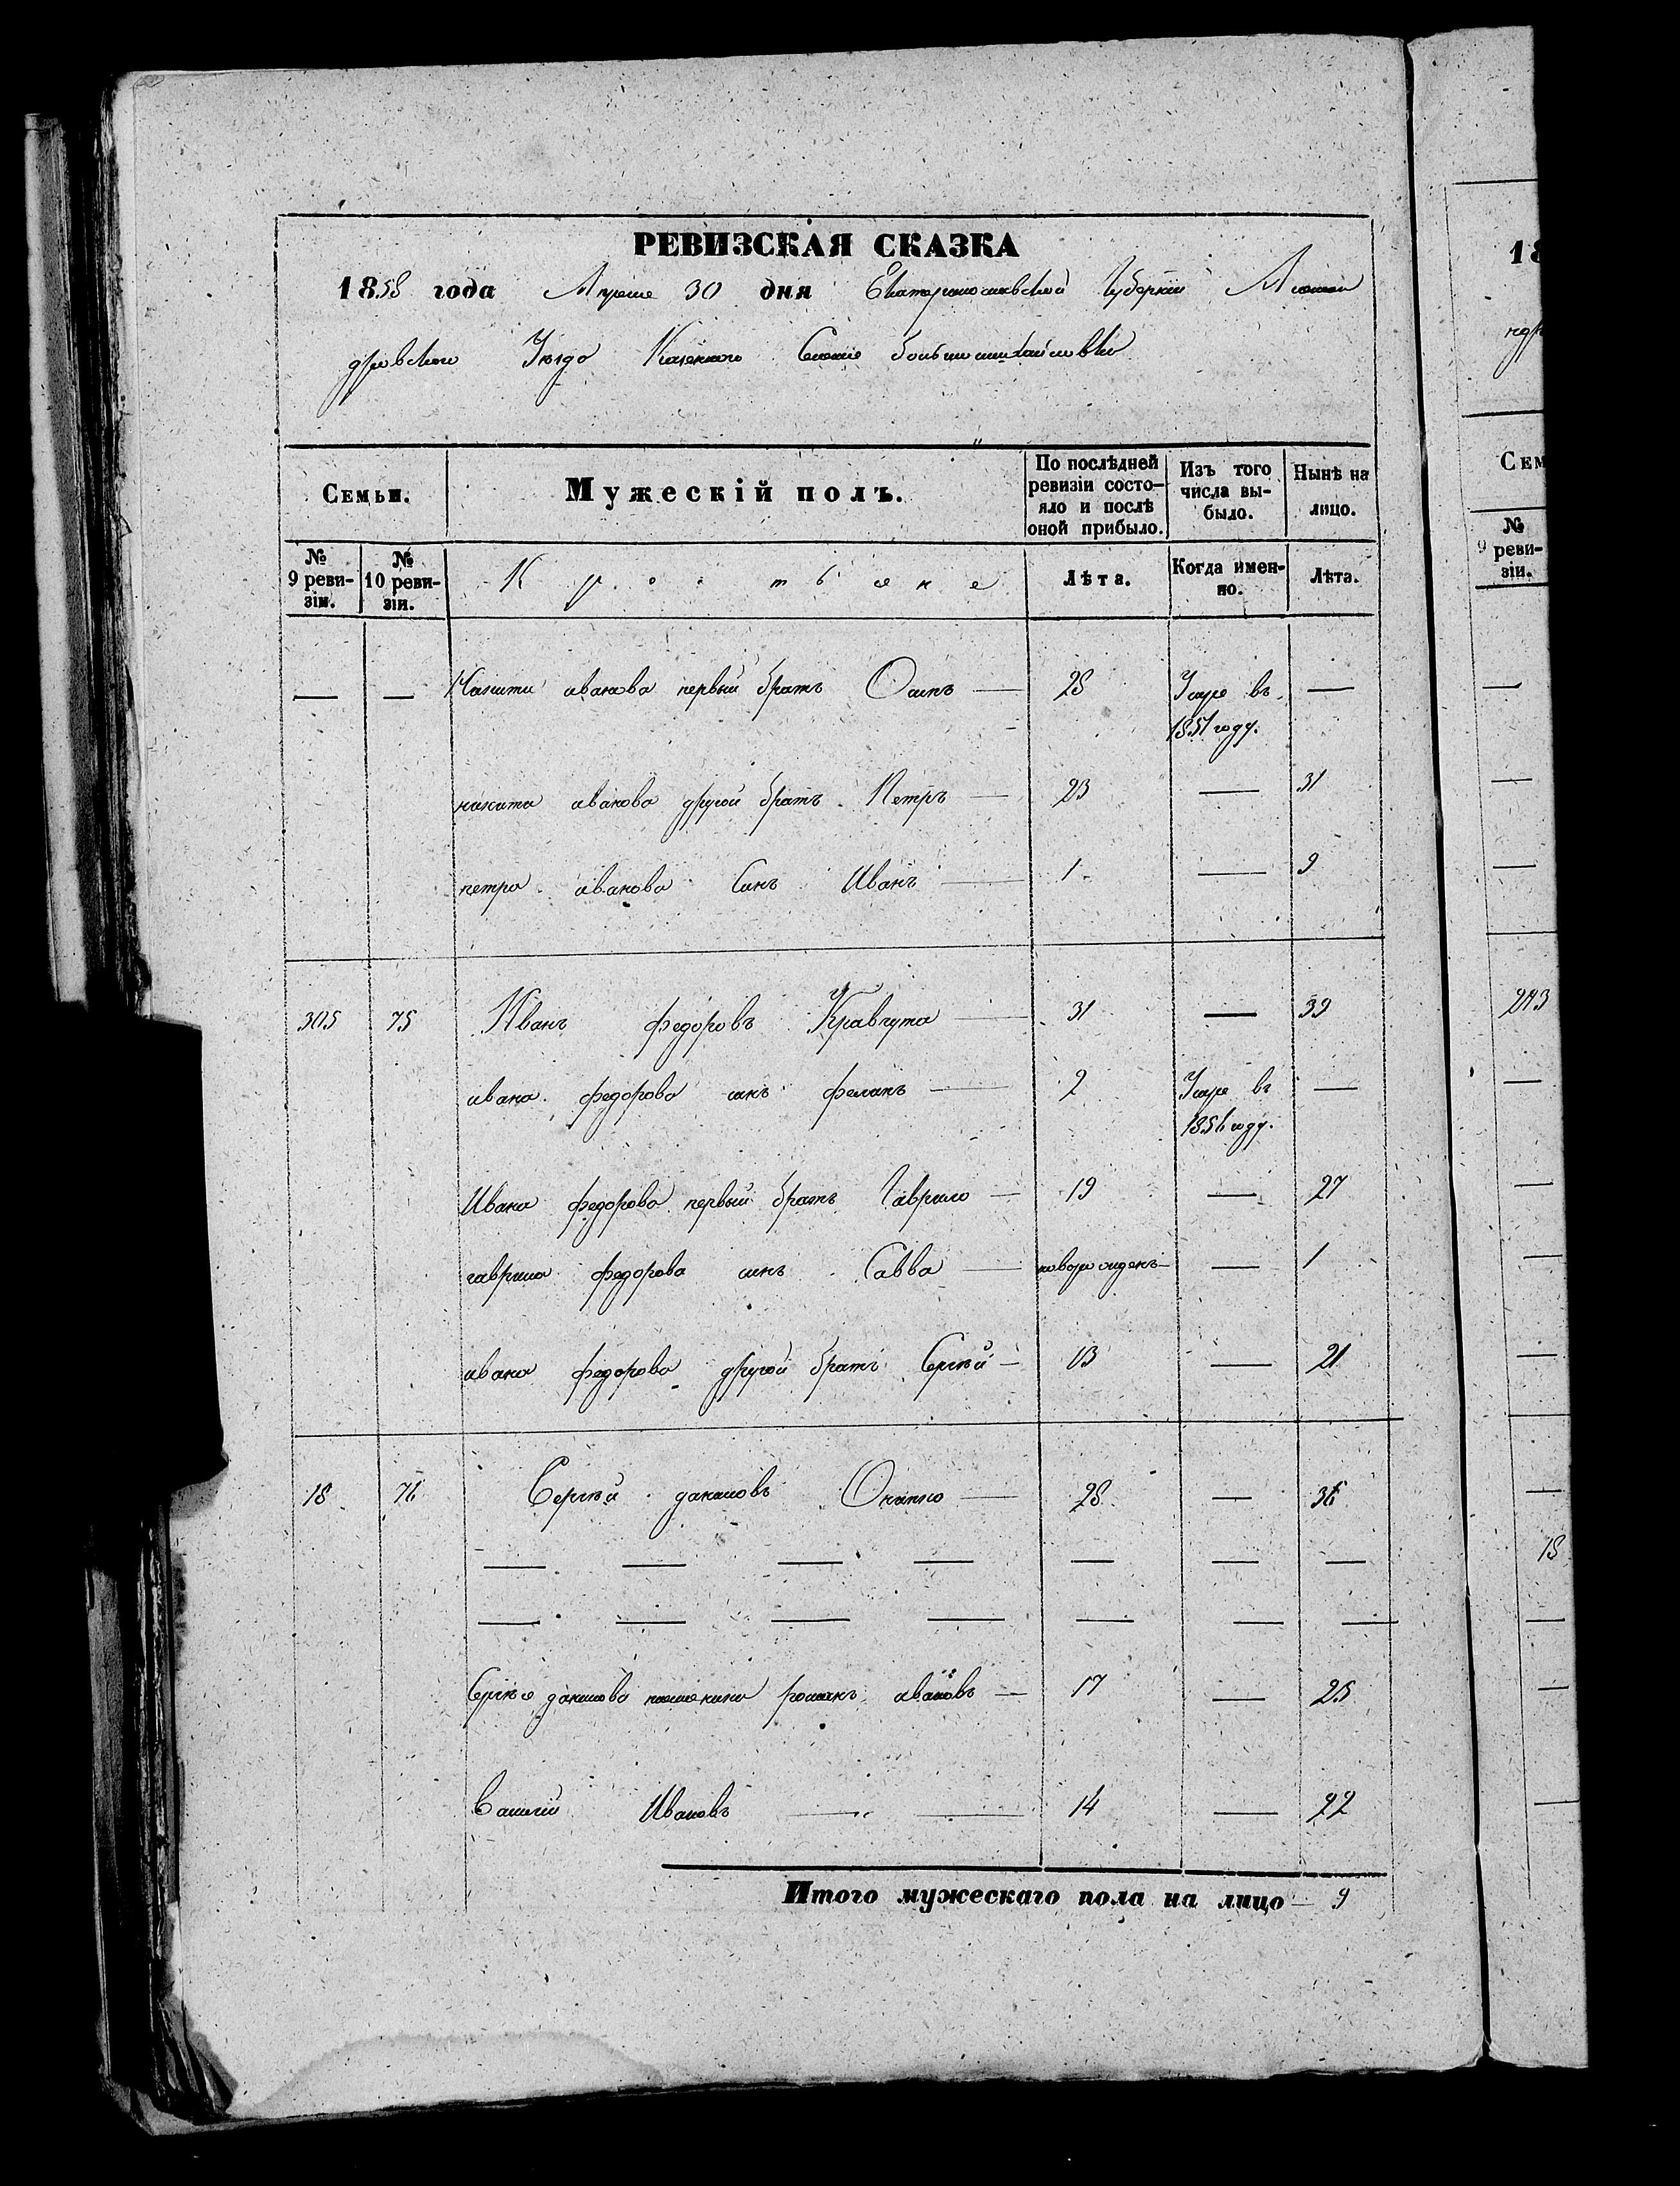 РЕВИЗСКАЯ СКАЗКА
1858 года Апреля 30 дня Екатеринославской Губернии Алексан
дровского Уезда Казенного Селения большемихайловки
Семьи. Мужескій полъ. По послѣдней ревизіи состо-яло и послѣ оной прибыло. Изъ того числа вы-было. Нынѣ на лицо.
№ 9 реви-зіи. № 10 реви-зіи. Крестьяне Лѣта. Когда имен-но. Лѣта.
— — Никиты иванова первый братъ Осипъ — 28 Умре въ —
1851 году.
никиты иванова другой братъ Петръ — 23 — 31
петра иванова Синъ Иванъ — 1 — 9
305 75 Иванъ федоровъ Кравчута — 31 — 39
ивана федорова синъ — 2 Умре въ —
1856 году.
Ивана федорова первый братъ Гаврило — 19 — 27
гаврила федорова синъ Савва — новорожденъ — 1
ивана федорова другой братъ Сергѣй — 13 — 21
18 76 Сергѣй даниловъ — 28 — 36
— — — — — — —
— — — — — — —
Сергѣя данилова племеники романъ ивановъ — 17 — 25
Василій Ивановъ — — 14 — 22
Итого мужескаго пола на лицо — 9
18
ндр
Сем
№ 9 реви-зіи.
—
—
—
243
—
—
—
—
—
18
—
—
—